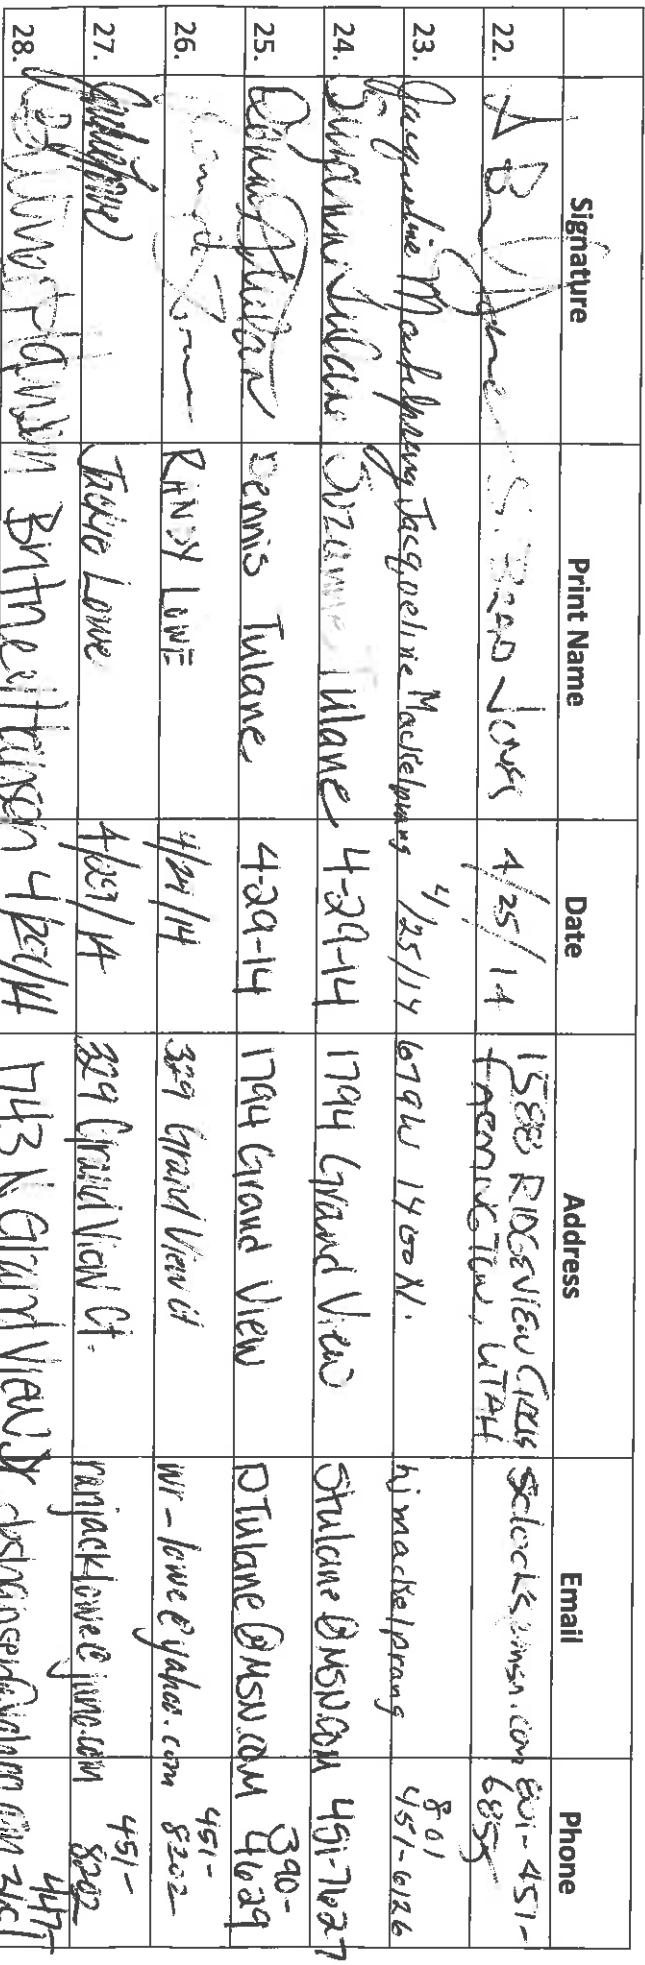 Signature Print Name Date Address Email Phone
22. S. BRAD JONES 4/25/14 1588 RIDGEVIEW CIRCLE FARMINGTON, UTAH 801-451-6855
23. Jacqueline Mackelprang Jacqueline Mackelprang 4/25/14 679 W 1400 N. hjmackelprang 801 451-6126
24. Suzanne Tulane Suzanne Tulane 4-29-14 1794 Grand View Stulane@MSN.COM 451-7627
25. Dennis Tulane Dennis Tulane 4-29-14 1794 Grand View DTulane@MSN.COM 390-4629
26. RANDY LOWE 4/29/14 329 Grand View Ct wr-lowe@yahoo.com 451-8202
27. Jackie Lowe 4/29/14 329 Grand View Ct. ranjacklowe@juno.com 451-8202
28. Hansen 4/29/14 1743 N. Grand View 447-3151